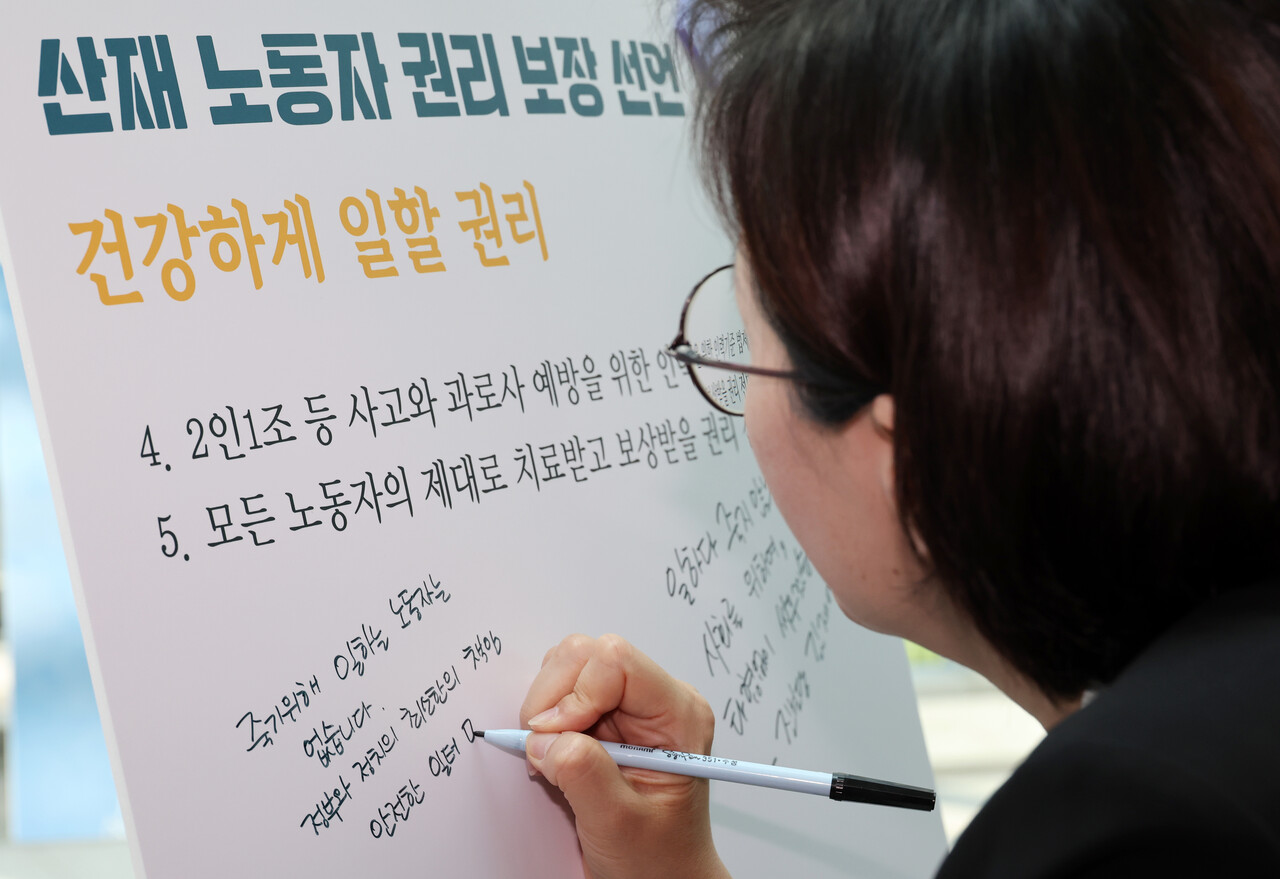 산재 노동자 권리 보장 선언
건강하게 일할 권리
4. 2인1조 등 사고와 과로사 예방을 위한 인력기준 법제
5. 모든 노동자의 제대로 치료받고 보상받을 권리
죽기위해 일하는 노동자는
없습니다.
정부와 정치의 최소한의 책임
안전한 일터
일하다 죽지 않
사회를 위하여,
monami